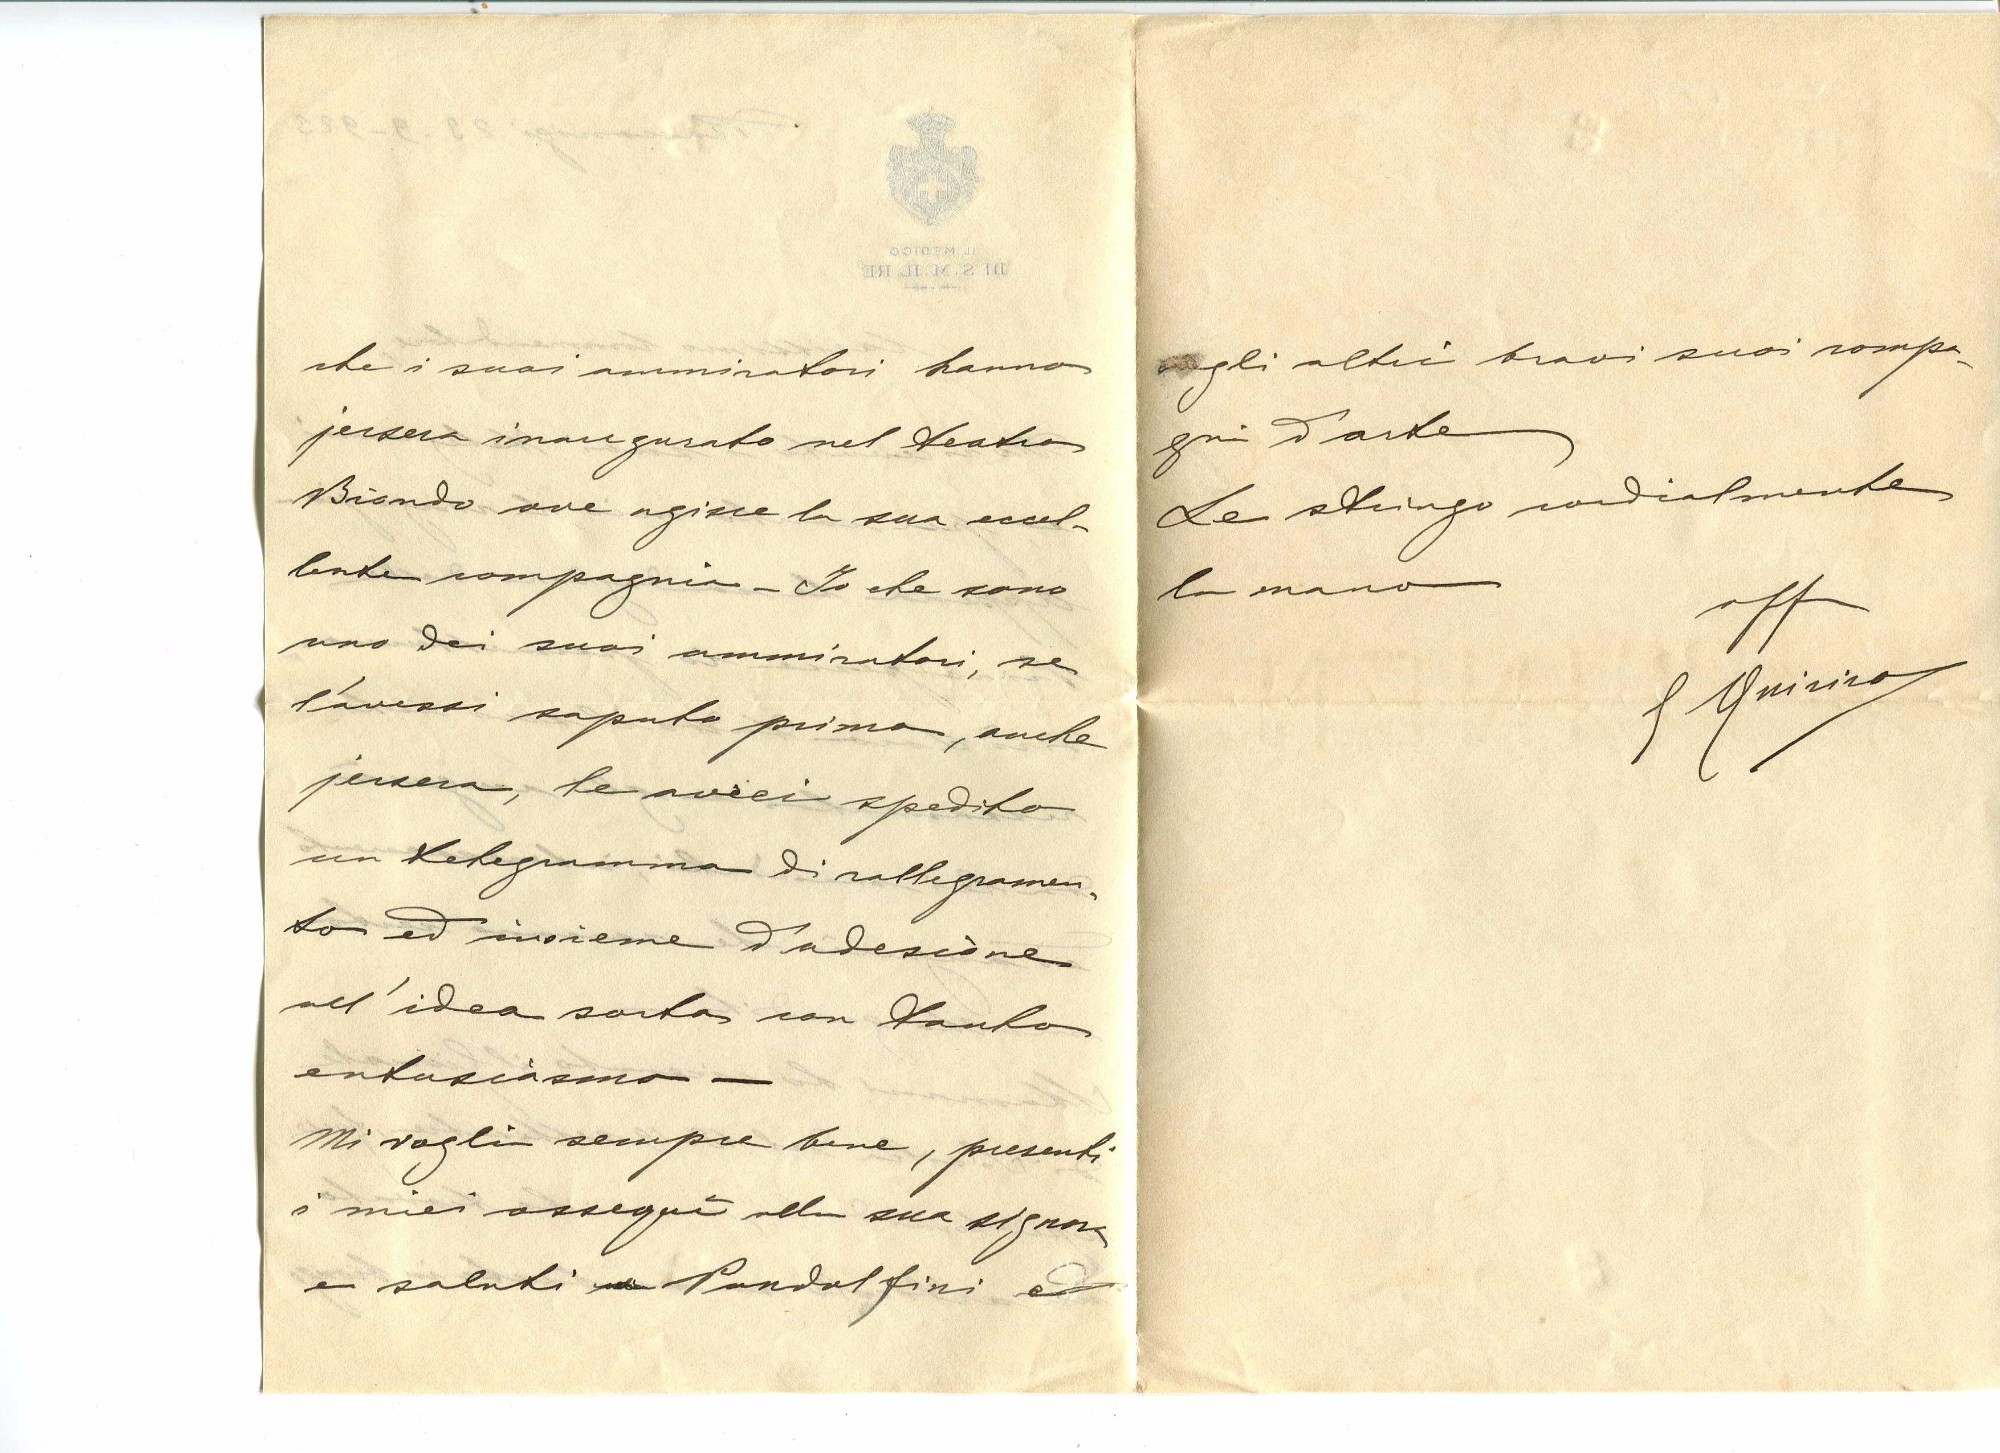 che i suoi ammiratori hanno
jersera inaugurato nel teatro
Biondo ove agisce la sua eccel-
lente compagnia - Io che sono
uno dei suoi ammiratori, se
l'avessi saputo prima, anche
jersera, le avrei spedito
un telegramma di rallegramen-
to ed insieme d'adesione
all'idea sorta con tanto
entusiasmo -
Mi voglia sempre bene, presenti
i miei ossequî alla sua signora
e saluti a Pandolfini ed
agli altri bravi suoi compa-
gni d'arte
Le stringo cordialmente
la mano
aff
Quirico
IL MEDICO
DI S. M. IL RE